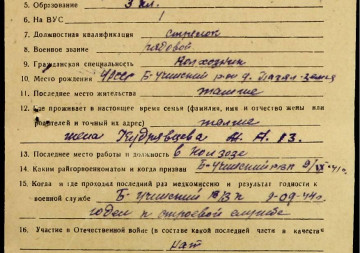 5. Образование 3 кл.
6. На ВУС 1
7. Должностная квалификация стрелок
8. Военное звание рядовой
9. Гражданская специальность Колхозник
10. Место рождения УАССР Б-Учинский р-он д.
11. Последнее место жительства та же
12. Где проживает в настоящее время семья (фамилия, имя и отчество жены или
родителей и точный их адрес)
жена Кудрявцева М. А. 13.
13. Последнее место работы и должность в колхозе
14. Каким райгорвоенкоматом и когда призван Б-Учинский РВК
15. Когда и где проходил последний раз медкомиссию и результат годности к
военной службе Б-Учинский РВК 9-09-44г.
годен к строевой службе
16. Участие в Отечественной войне (в составе какой последней части и в качестве
нат